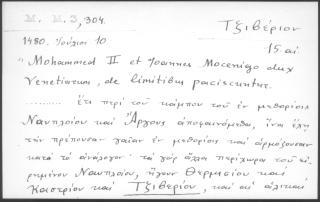 M. M. 3, 304.
Τζιβέριον
1480. Ἰούλιος 10
15 αἰ
"Mohammed II et Joannes Mocenigo dux
Venetiarum, de limitibus paciscuntur.
......... ἔτι περὶ τοῦ κάμπου τοῦ ἐν μεθορίοις
Ναυπλοίου καὶ Ἄργους ἀποφαινόμεθα, ἵνα ἔχῃ
τὴν πρέπουσαν γαίαν ἐν μεθορίοις καὶ ἁρμόζουσαν
κατὰ τὸ ἀνάλογον· τὰ γὰρ ἄλλα περίχωρα τοῦ εἰ-
ρημένου Ναυπλοίου, ἤγουν Θερμησίου καὶ
Καστρίου καὶ Τζιβερίου, καὶ αἱ ἁλικαὶ